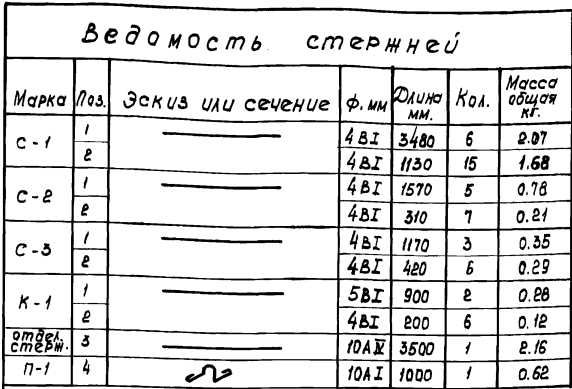 Ведомость стержней
Марка Поз. Эскиз или сечение ф. мм Длина мм. Кол. Масса общая кг.
С-1 1 4ВI 3480 6 2.07
2 4ВI 1130 15 1.68
С-2 1 4ВI 1570 5 0.78
2 4ВI 310 7 0.21
С-3 1 4ВI 1170 3 0.35
2 4ВI 420 6 0.29
К-1 1 5ВI 900 2 0.28
2 4ВI 200 6 0.12
отдел. стерж. 3 10АIV 3500 1 2.16
П-1 4 10АI 1000 1 0.62